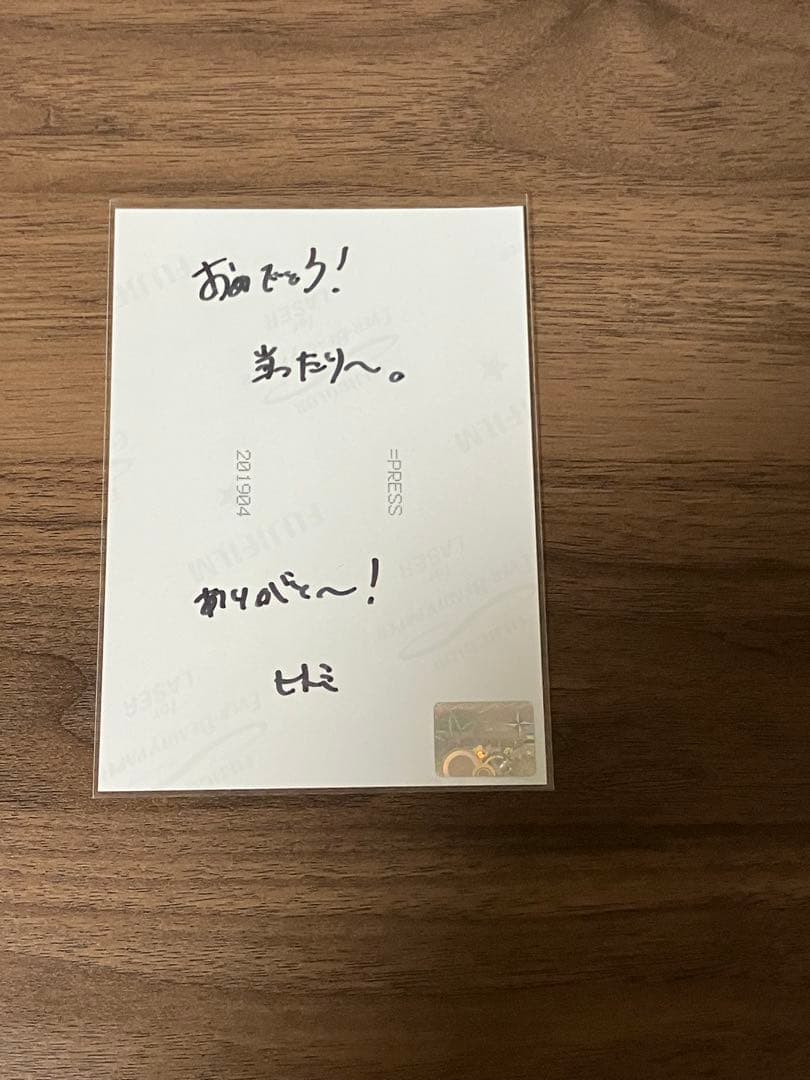 おめでとう!
当ったり〜。
=PRESS
201904
ありがと〜!
ヒトミ
FUJIFILM
LASER